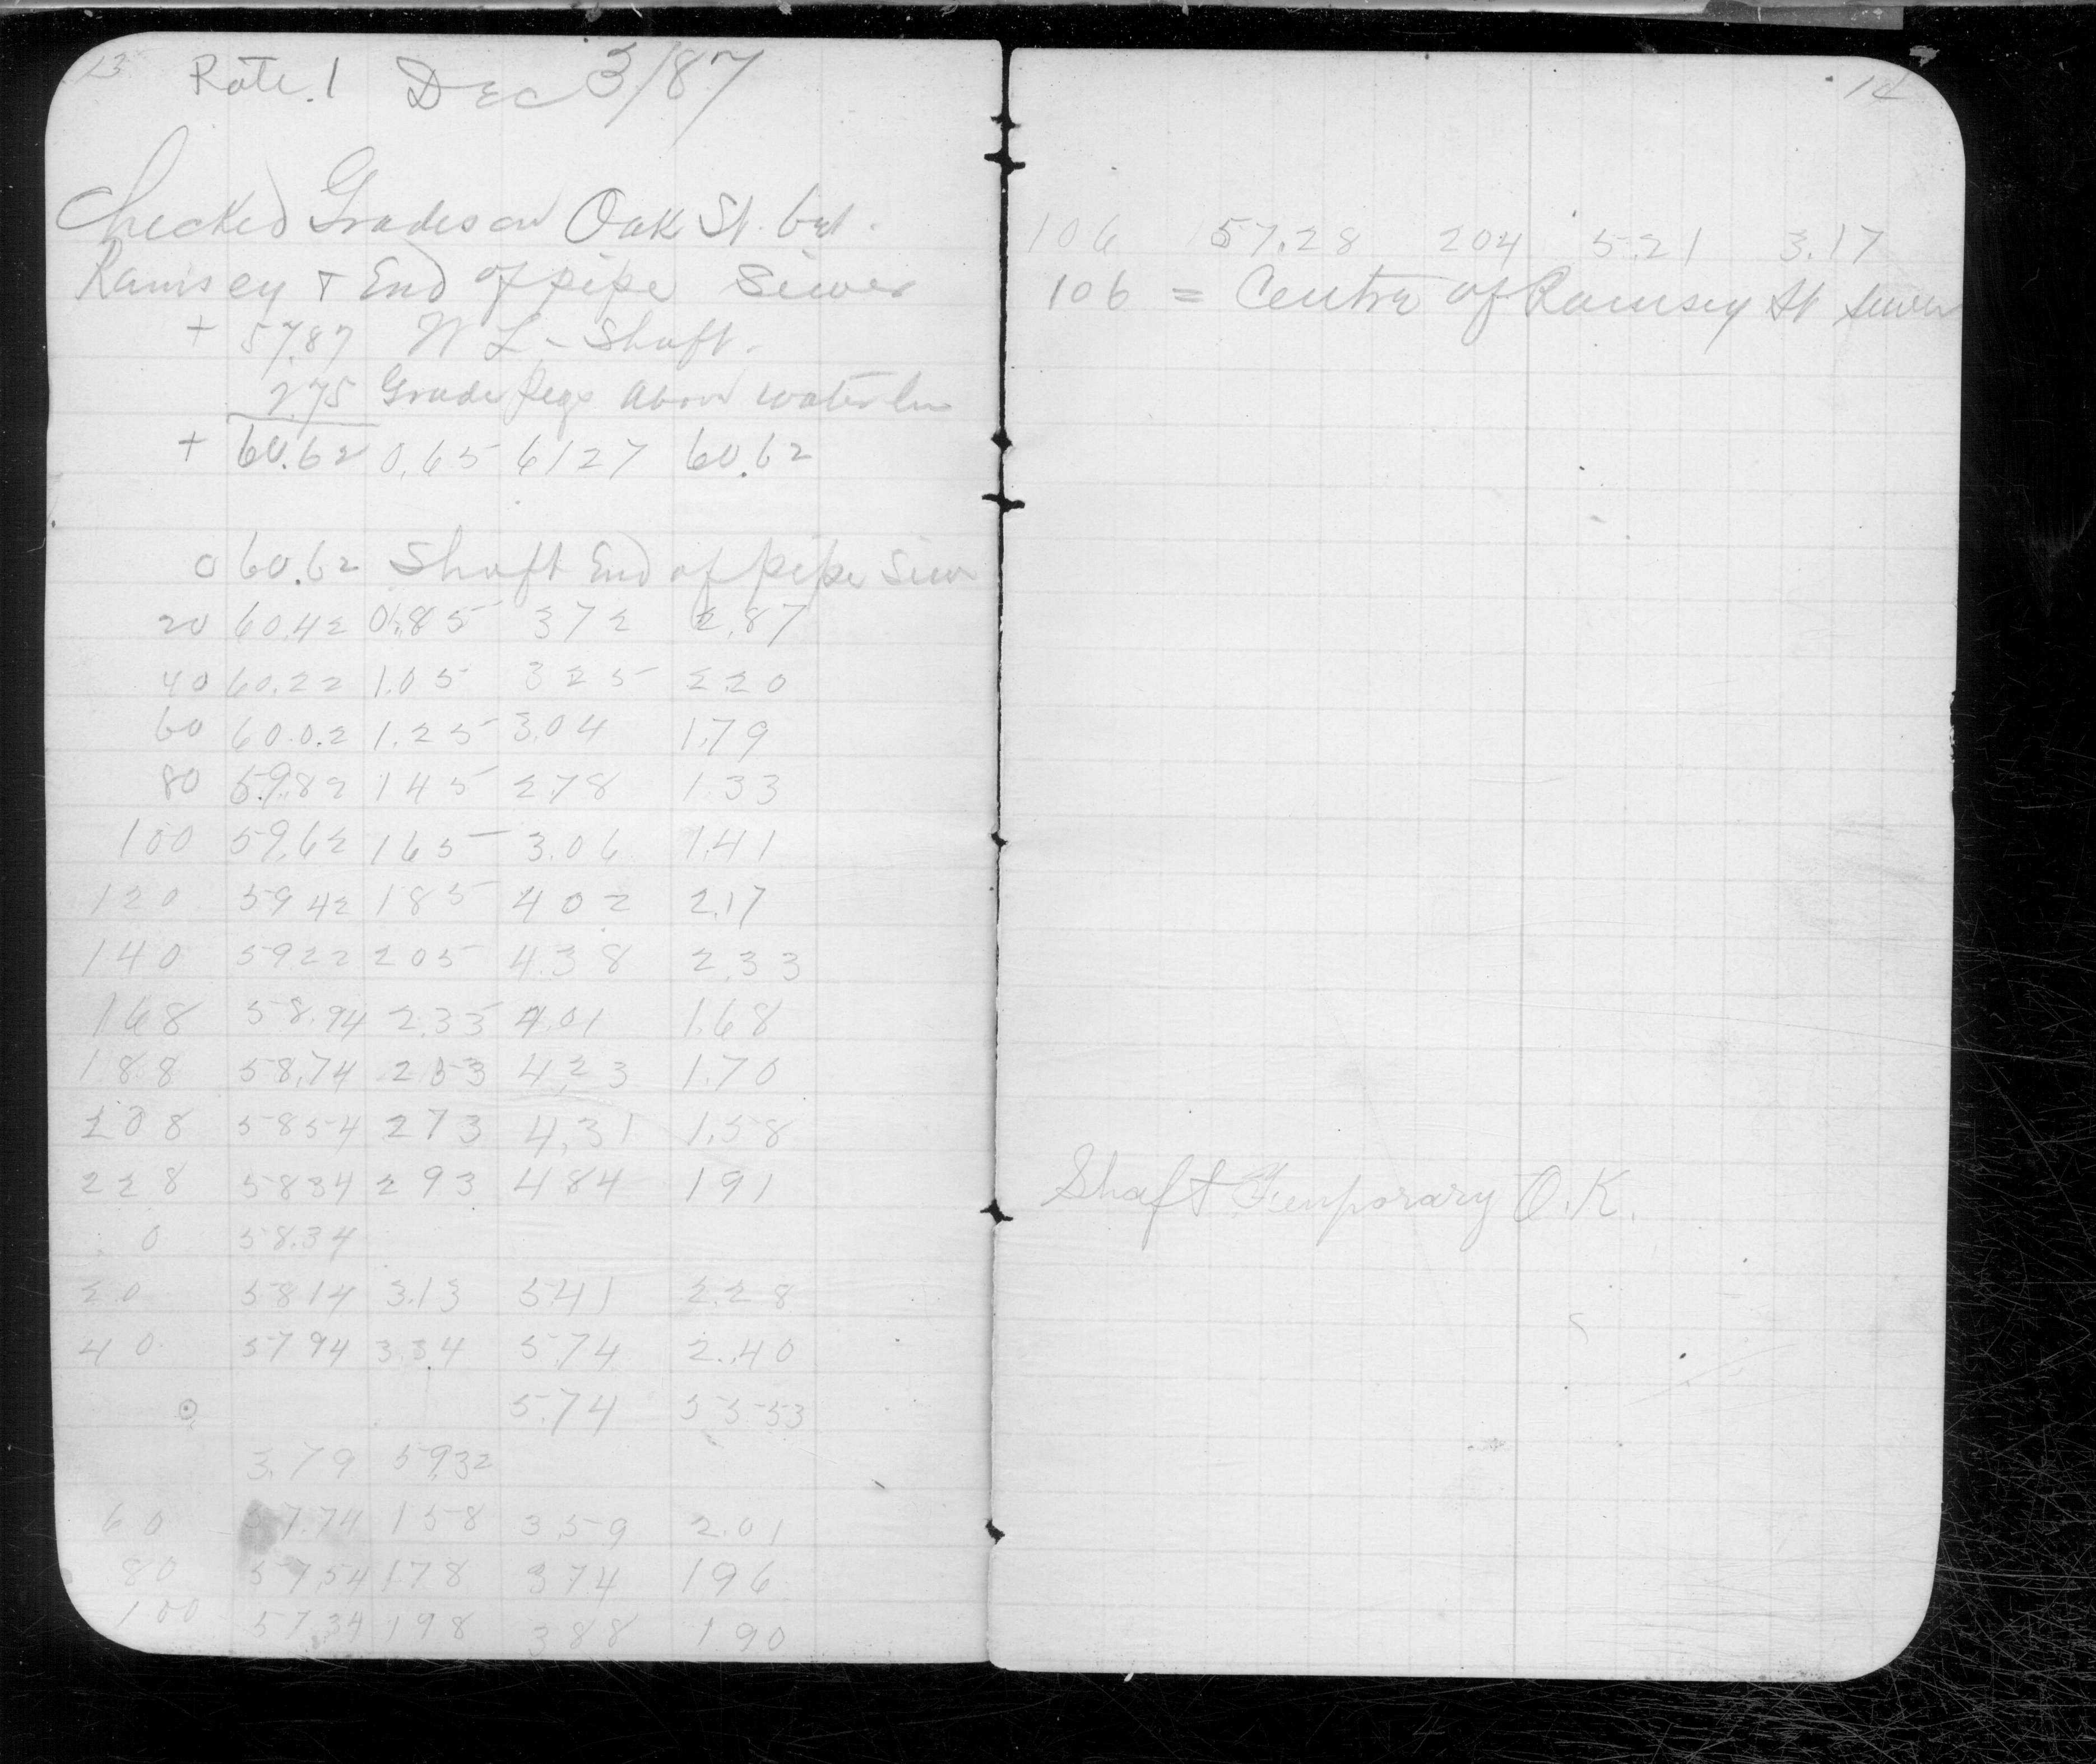 13
Rate. 1 Dec 3/87
Checked Grades on Oak St. bet.
Ramsey + End of pipe Sewer
+ 57.87 W L - Shaft.
2.75 Grade pegs above water line
+ 60.62 0.65 61 27 60.62
0 60.62 Shaft End of pipe Sewer
20 60.42 0.85 372 2.87
40 60.22 1.05 325 2.20
60 60.0.2 1.25 3.04 1.79
80 59.82 145 2.78 1.33
100 59.62 165 3.06 1.41
120 59 42 185 402 2.17
140 5922 205 4.38 2.33
168 58.94 2.33 4.01 1.68
188 58.74 253 4.23 1.70
208 5854 273 4.31 1.58
228 5834 293 484 191
0 58.34
20 5814 3.13 541 2.28
40 5794 3.34 5.74 2.40
5.74 55 53
3.79 59.32
60 57.74 158 3.59 2.01
80 57.54 178 374 196
100 57.34 198 388 190
14
106 57.28 204 5.21 3.17
106 = Centre of Ramsey St sewer
Shaft Temporary O.K.